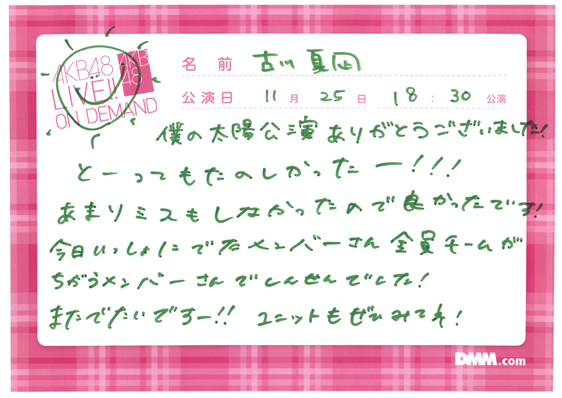 AKB48
LIVE!!
ON DEMAND
AKB
48
名前 古川夏凪
公演日 11月 25日 18:30 公演
僕の太陽公演 ありがとうございました!
とーってもたのしかったー!!!
あまりミスもしなかったので良かったです!
今日いっしょにでたメンバーさん 全員チームが
ちがうメンバーさんでしんせんでした!
またでたいですー!! ユニットもぜひみてね!
DMM.com